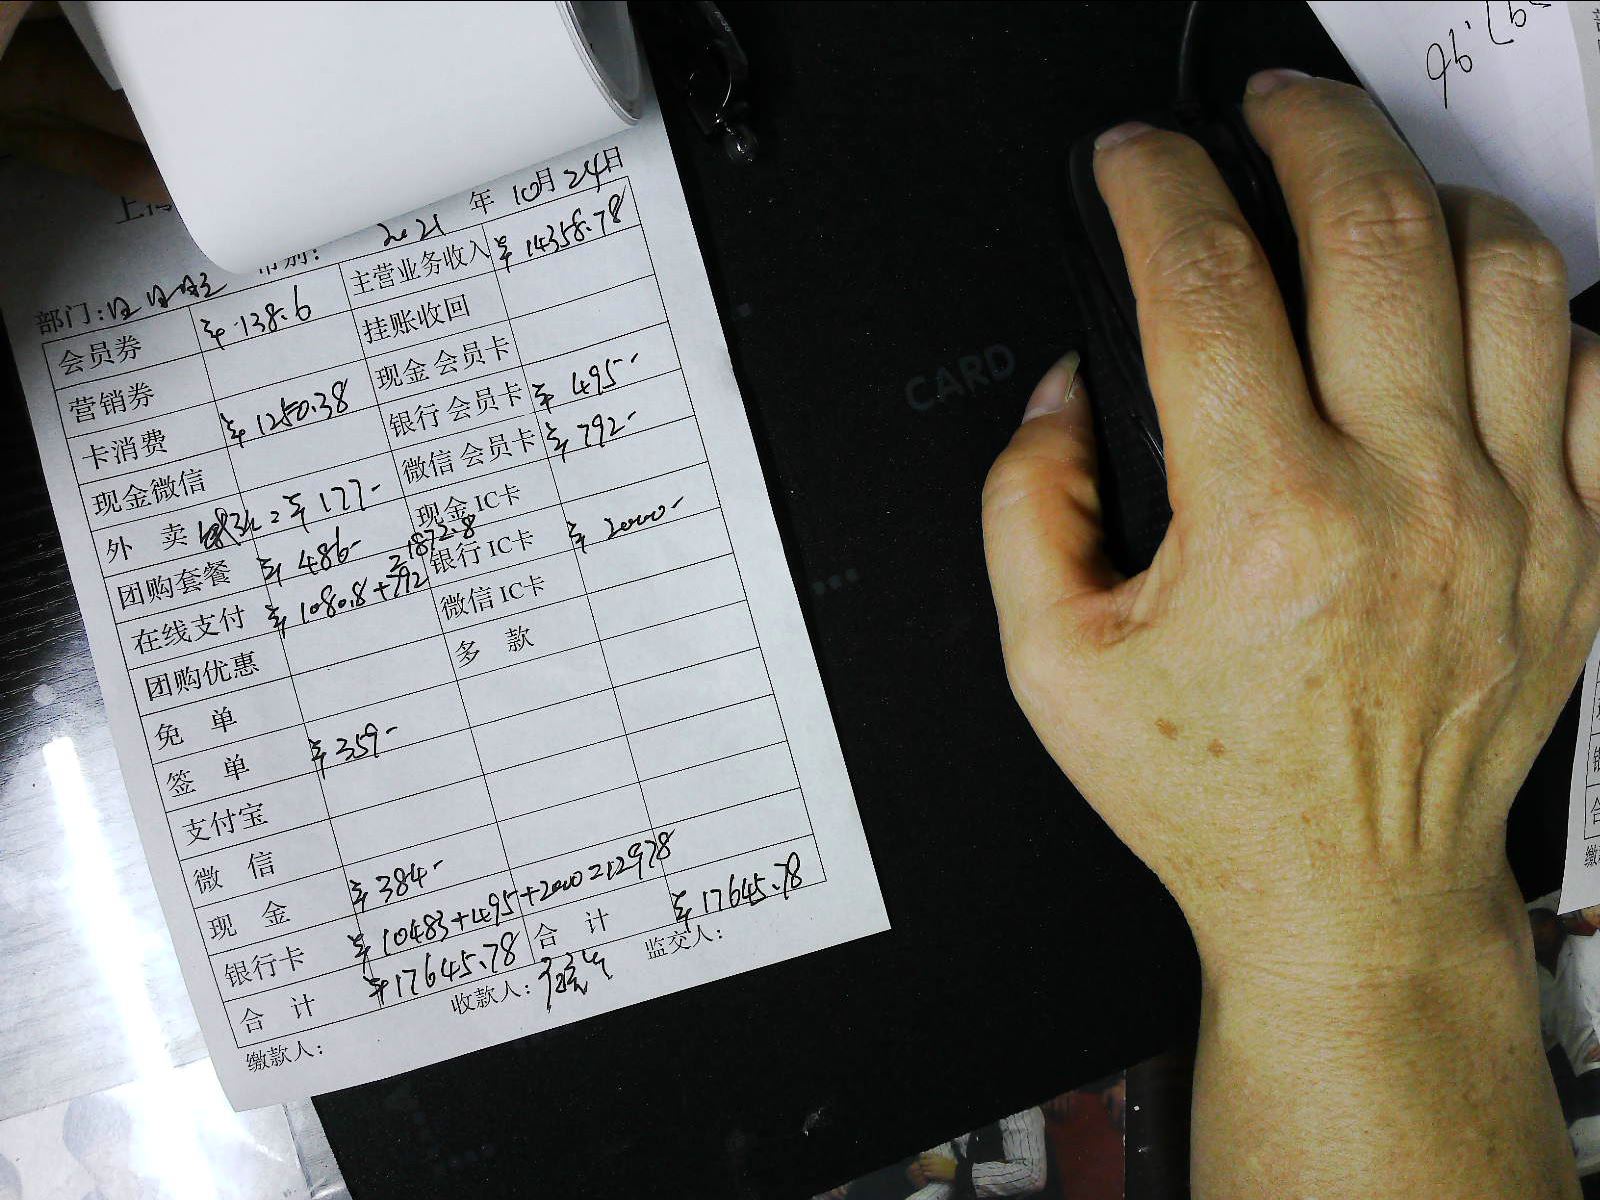 2021 年 10月 24日
部门:日日旺 币别:
会员券 ¥138.6 主营业务收入 ¥14358.78
营销券 挂账收回
卡消费 ¥1250.38 现金 会员卡
现金微信 银行 会员卡 ¥495-
外 卖 ¥177- 微信 会员卡 ¥792-
团购套餐 ¥486- 现金 IC卡
在线支付 ¥1080.8+792=1872.8 银行 IC卡 ¥2000-
团购优惠 微信 IC卡
免 单 多 款
签 单 ¥359-
支付宝
微 信
现 金 ¥384-
银行卡 ¥10483+495+2000=12978
合 计 ¥17645.78 合 计 ¥17645.78
缴款人: 收款人: 监交人:
CARD